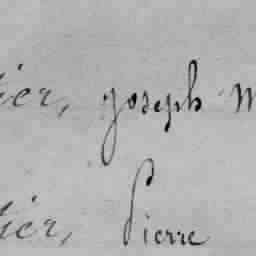 ier, Joseph M
ier, Pierre